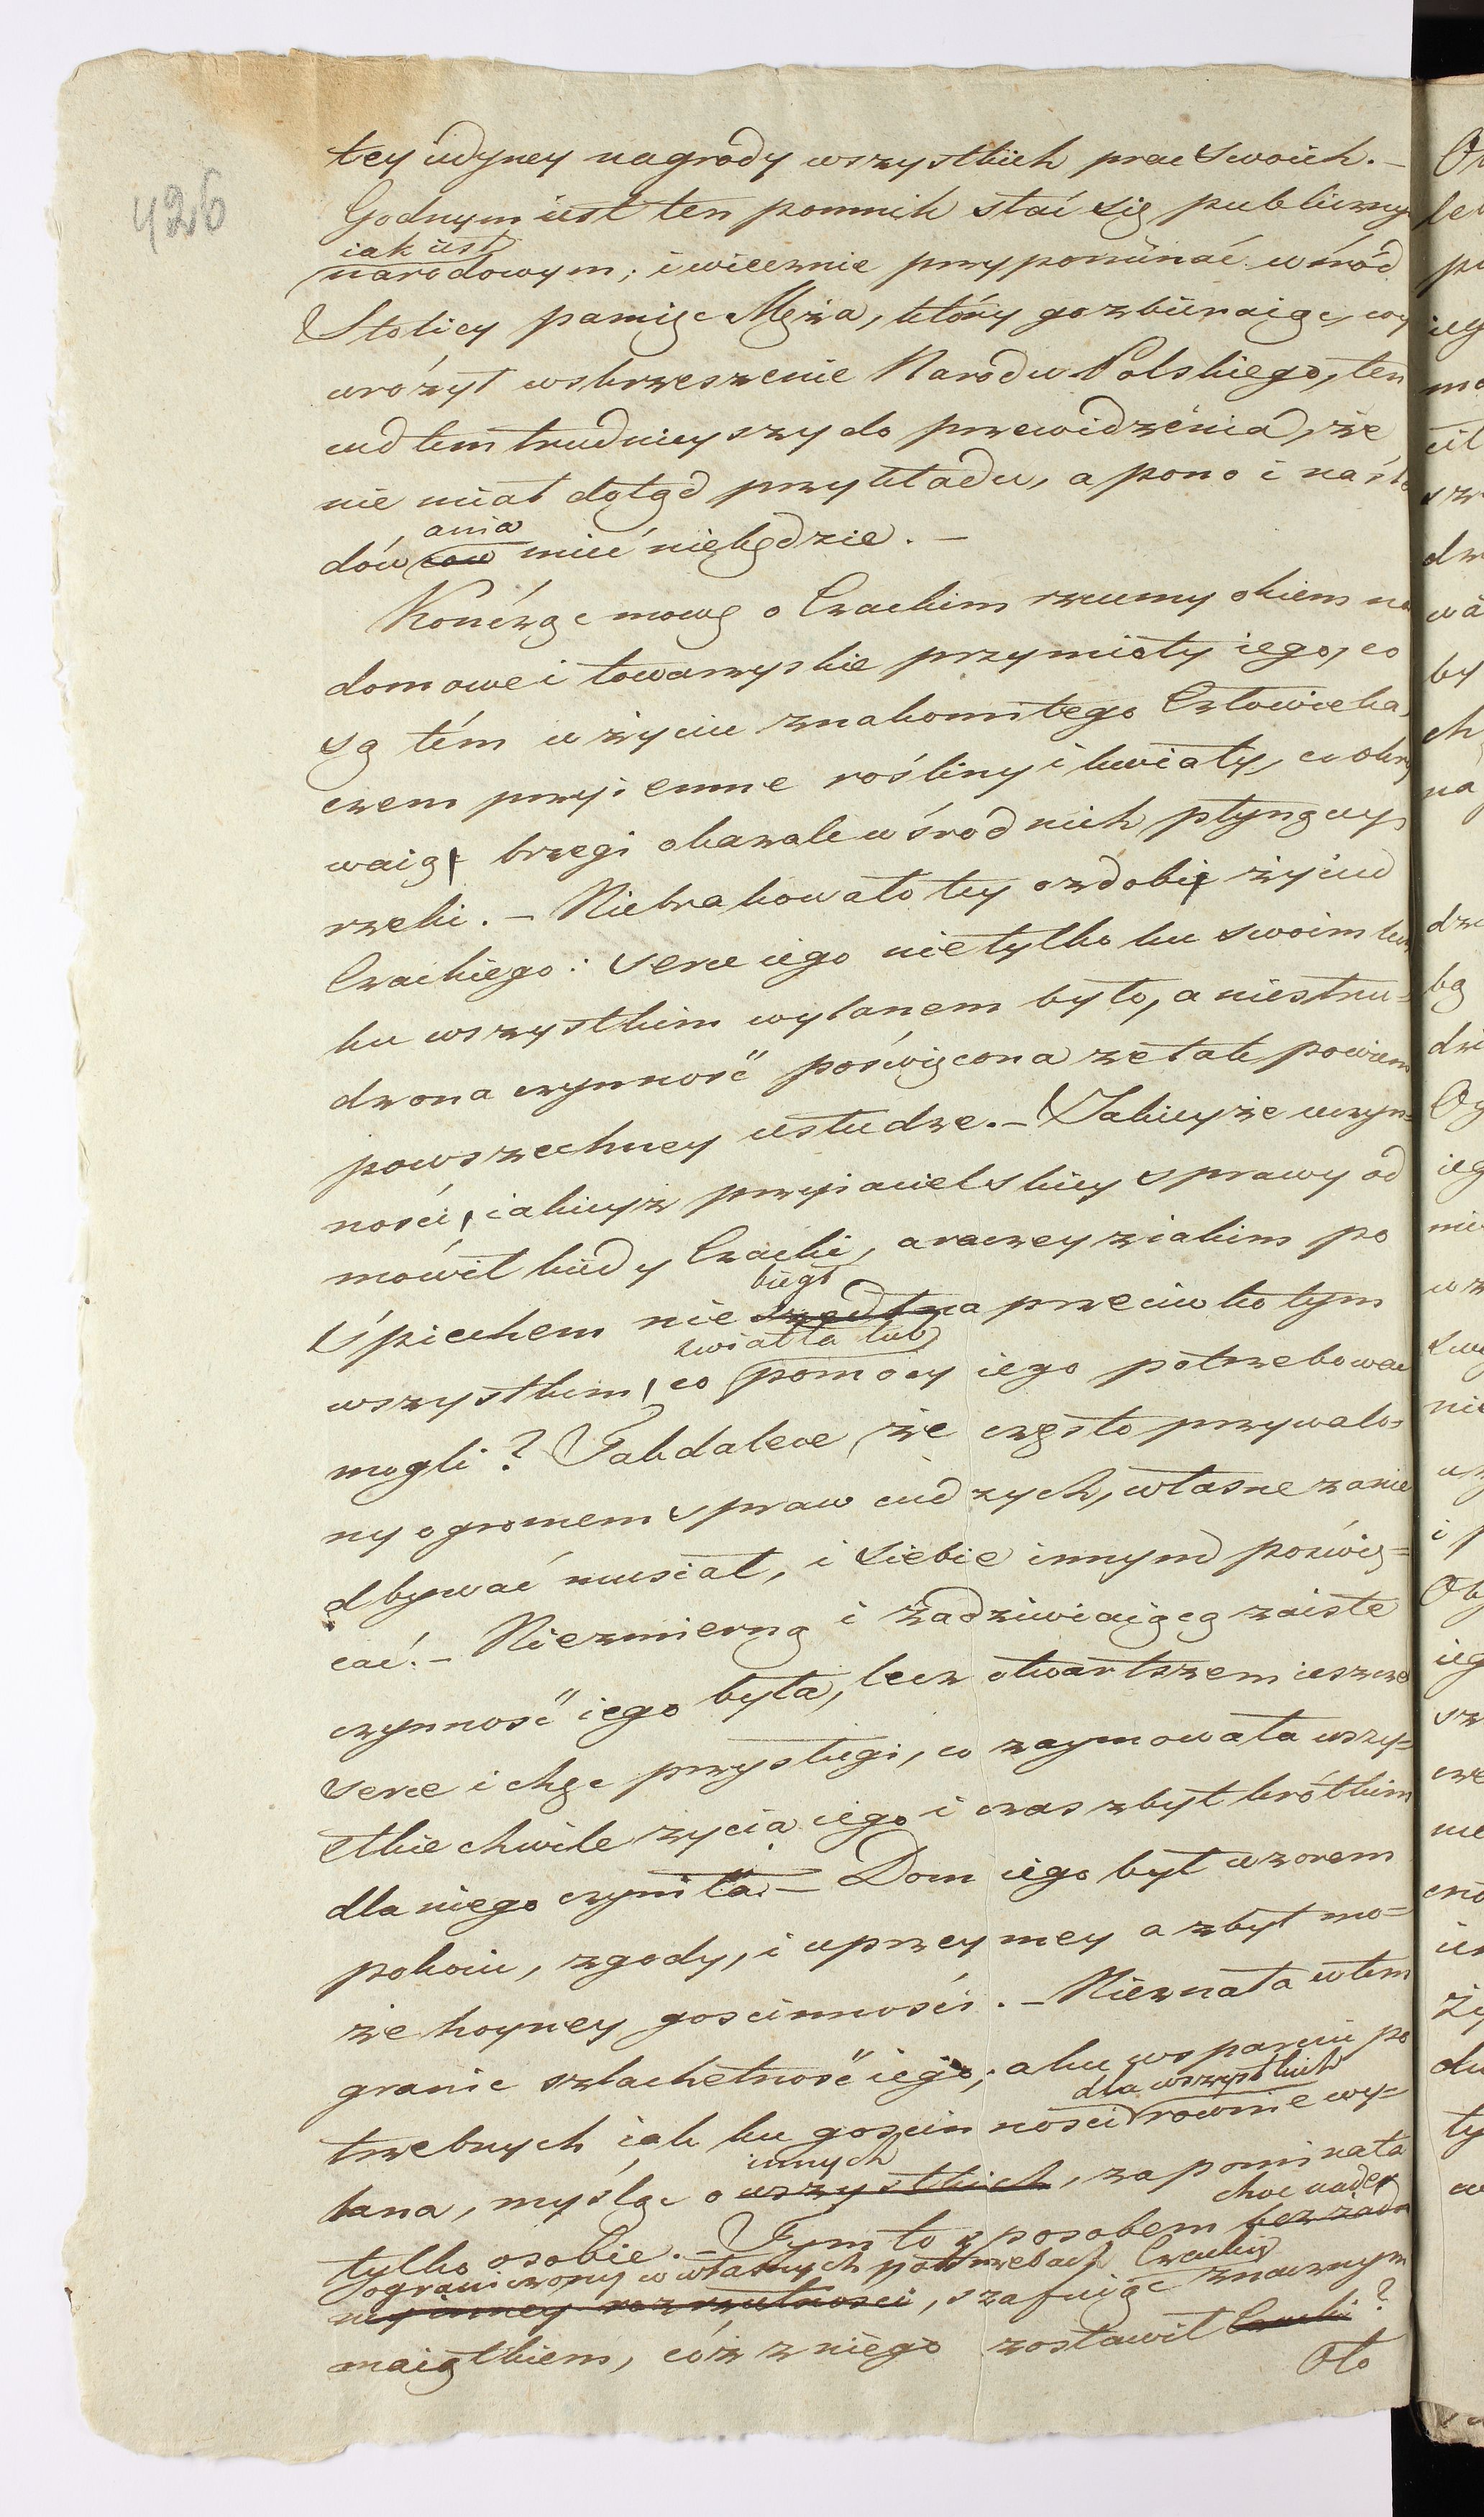 426
tey iedyney nagrody wszystkich prac swoich. —
Godnym iest ten pomnik stać się publiczny
iak iest
narodowym; i wiecznie przypominać wśród
Stolicy pamięc Męża, który go zbieraiąc, wy
wróżył wskrzeszenie Narodu Polskiego, ten
cud tem trudnieyszy do przewidzénia, że
nie miał dotąd przykładu, a pono i naśla
ania
dów ców mieć niebędzie. —
Kończąc mowę o Czackim rzućmy okiem na
domowe i towarzyskie przymioty iego, co
są tém w życiu znakomitego Człowieka,
czem przyiemne rośliny i kwiaty, co okry
waią brzegi okazale wśród nich płynącey
rzeki. — Niebrakowało tey ozdoby życiu
Czackiego: serce iego nietylko ku swoim lecz
ku wszystkim wylanem było, a niestru=
dzona czynność poświęcona że tak powiem
powszechney usłudze. — Jakieyże uczyn=
ności, iakieyż przyiacielskiey sprawy od
mówił kiedy Czacki, a raczey z iakim po
biegł
śpiechem nie szedł na przeciwko tym
światła lub
wszystkim, co pomocy iego potrzebować
mogli? Tak dalece, że często przywalo=
ny ogromem spraw cudzych, własne zanie
dbywać musiał, i siebie innym poświę=
cać. — Niezmierną i zadziwiaiącą zaiste
czynność iego była, lecz otwartszem ieszcze
serce i chęć przysługi, co zaymowała wszy=
stkie chwile życia iego i czas zbyt krótkim
dla niego czyniła. — Dom iego był wzorem
pokoiu, zgody, i uprzeymey a zbyt mo=
że hoyney goscinności. — Nieznała w tem
granic szlachetność iego; a ku wsparciu po
dla wszystkich
trzebnych iak ku goscinności równie wy=
innych
lana, myśląc o wszystkich, zapominała
choć nader
tylko osobie. — Tym to sposobem bez żadn
ograniczony w własnych potrzebach Czacki
ney inney rozrzutności, szafuiąc znacznym
maiątkiem, cóż z niego zostawił Czacki?
Oto